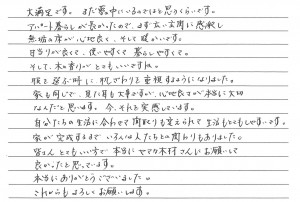 大満足です。まだ夢の中にいるのではと思うくらいです。
アパート暮らしが長かったので、まず広い玄関に感激し
無垢の床が心地良く、そして暖かいです。
日当りが良くて、使いやすくて暮らしやすくて。
そして、木の香りがとてもいいですね。
服を選ぶ時に肌ざわりを重視するようになりました。
家も同じで、見た目も大事だが、心地良さが本当に大切
なんだと思います。今、それを実感しています。
自分たちの生活に合わせて間取りも変えられて生活もとてもしやすいです。
家が完成するまでいろんな人たちとの関わりもありました。
皆さんとてもいい方で本当にヤマカ木村さんにお願いして
良かったと思っています。
本当にありがとうございました。
これからもよろしくお願いします。